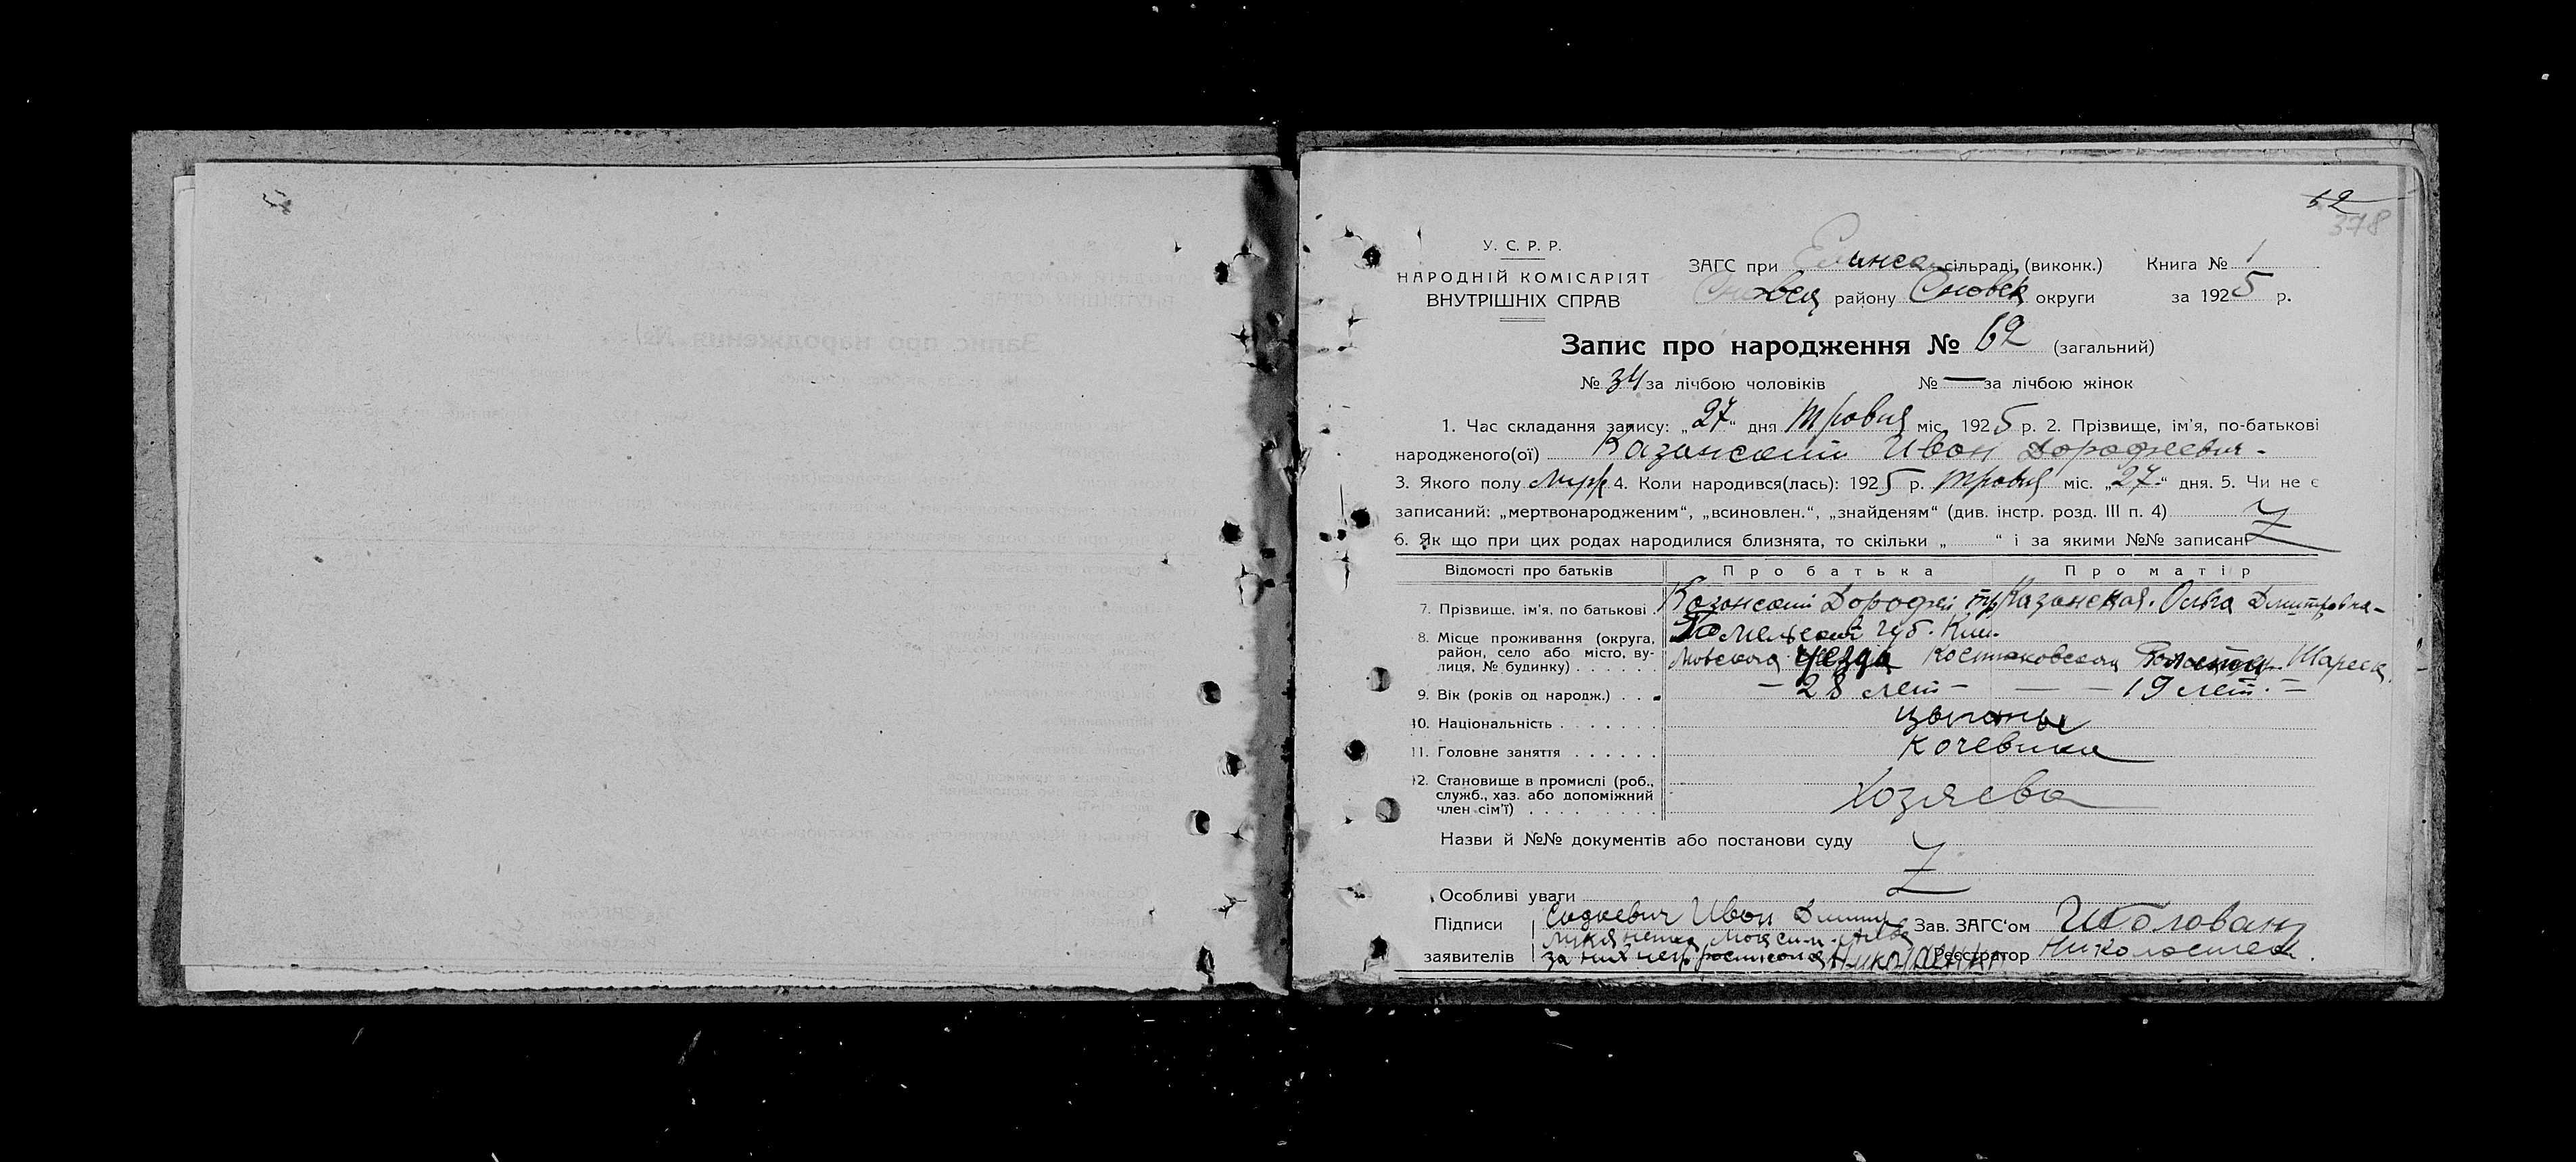 62
378
У. С. Р. Р.
НАРОДНІЙ КОМІСАРІЯТ
ВНУТРІШНІХ СПРАВ
ЗАГС при сільраді (виконк.) Книга № 1
району Сновск округи за 1925 р.
Запис про народження № 62 (загальний)
№ 34 за лічбою чоловіків № — за лічбою жінок
1. Час складання запису: „27“ дня Травня міс. 1925 р. 2. Прізвище, ім'я, по-батькові
народженого(ої) Казанский Иван Дорофеевич -
3. Якого полу 4. Коли народився(лась): 1925 р. Травня міс. „27“ дня. 5. Чи не є
записаний: „мертвонародженим“, „всиновлен.“, „знайденям“ (див. інстр. розд. III п. 4)
6. Як що при цих родах народилися близнята, то скільки „ “ і за якими №№ записані
Відомості про батьків Про батька Про матір
7. Прізвище, ім'я, по батькові Казанский Дорофей Казанская Ольга Дмитровна -
8. Місце проживання (округа, район, село або місто, вулиця, № будинку) Гомельской губ. Кли-
мовского уезда Волости
9. Вік (років од народж.) - 28 лет - — - 19 лет. -
10. Національність цыганы
11. Головне заняття кочевники
12. Становище в промислі (роб., служб., хаз. або допоміжний член сім'ї) Хозяева
Назви й №№ документів або постанови суду
Особливі уваги
Підписи Иван Зав. ЗАГС'ом
заявителів за них негр. росписался Реєстратор